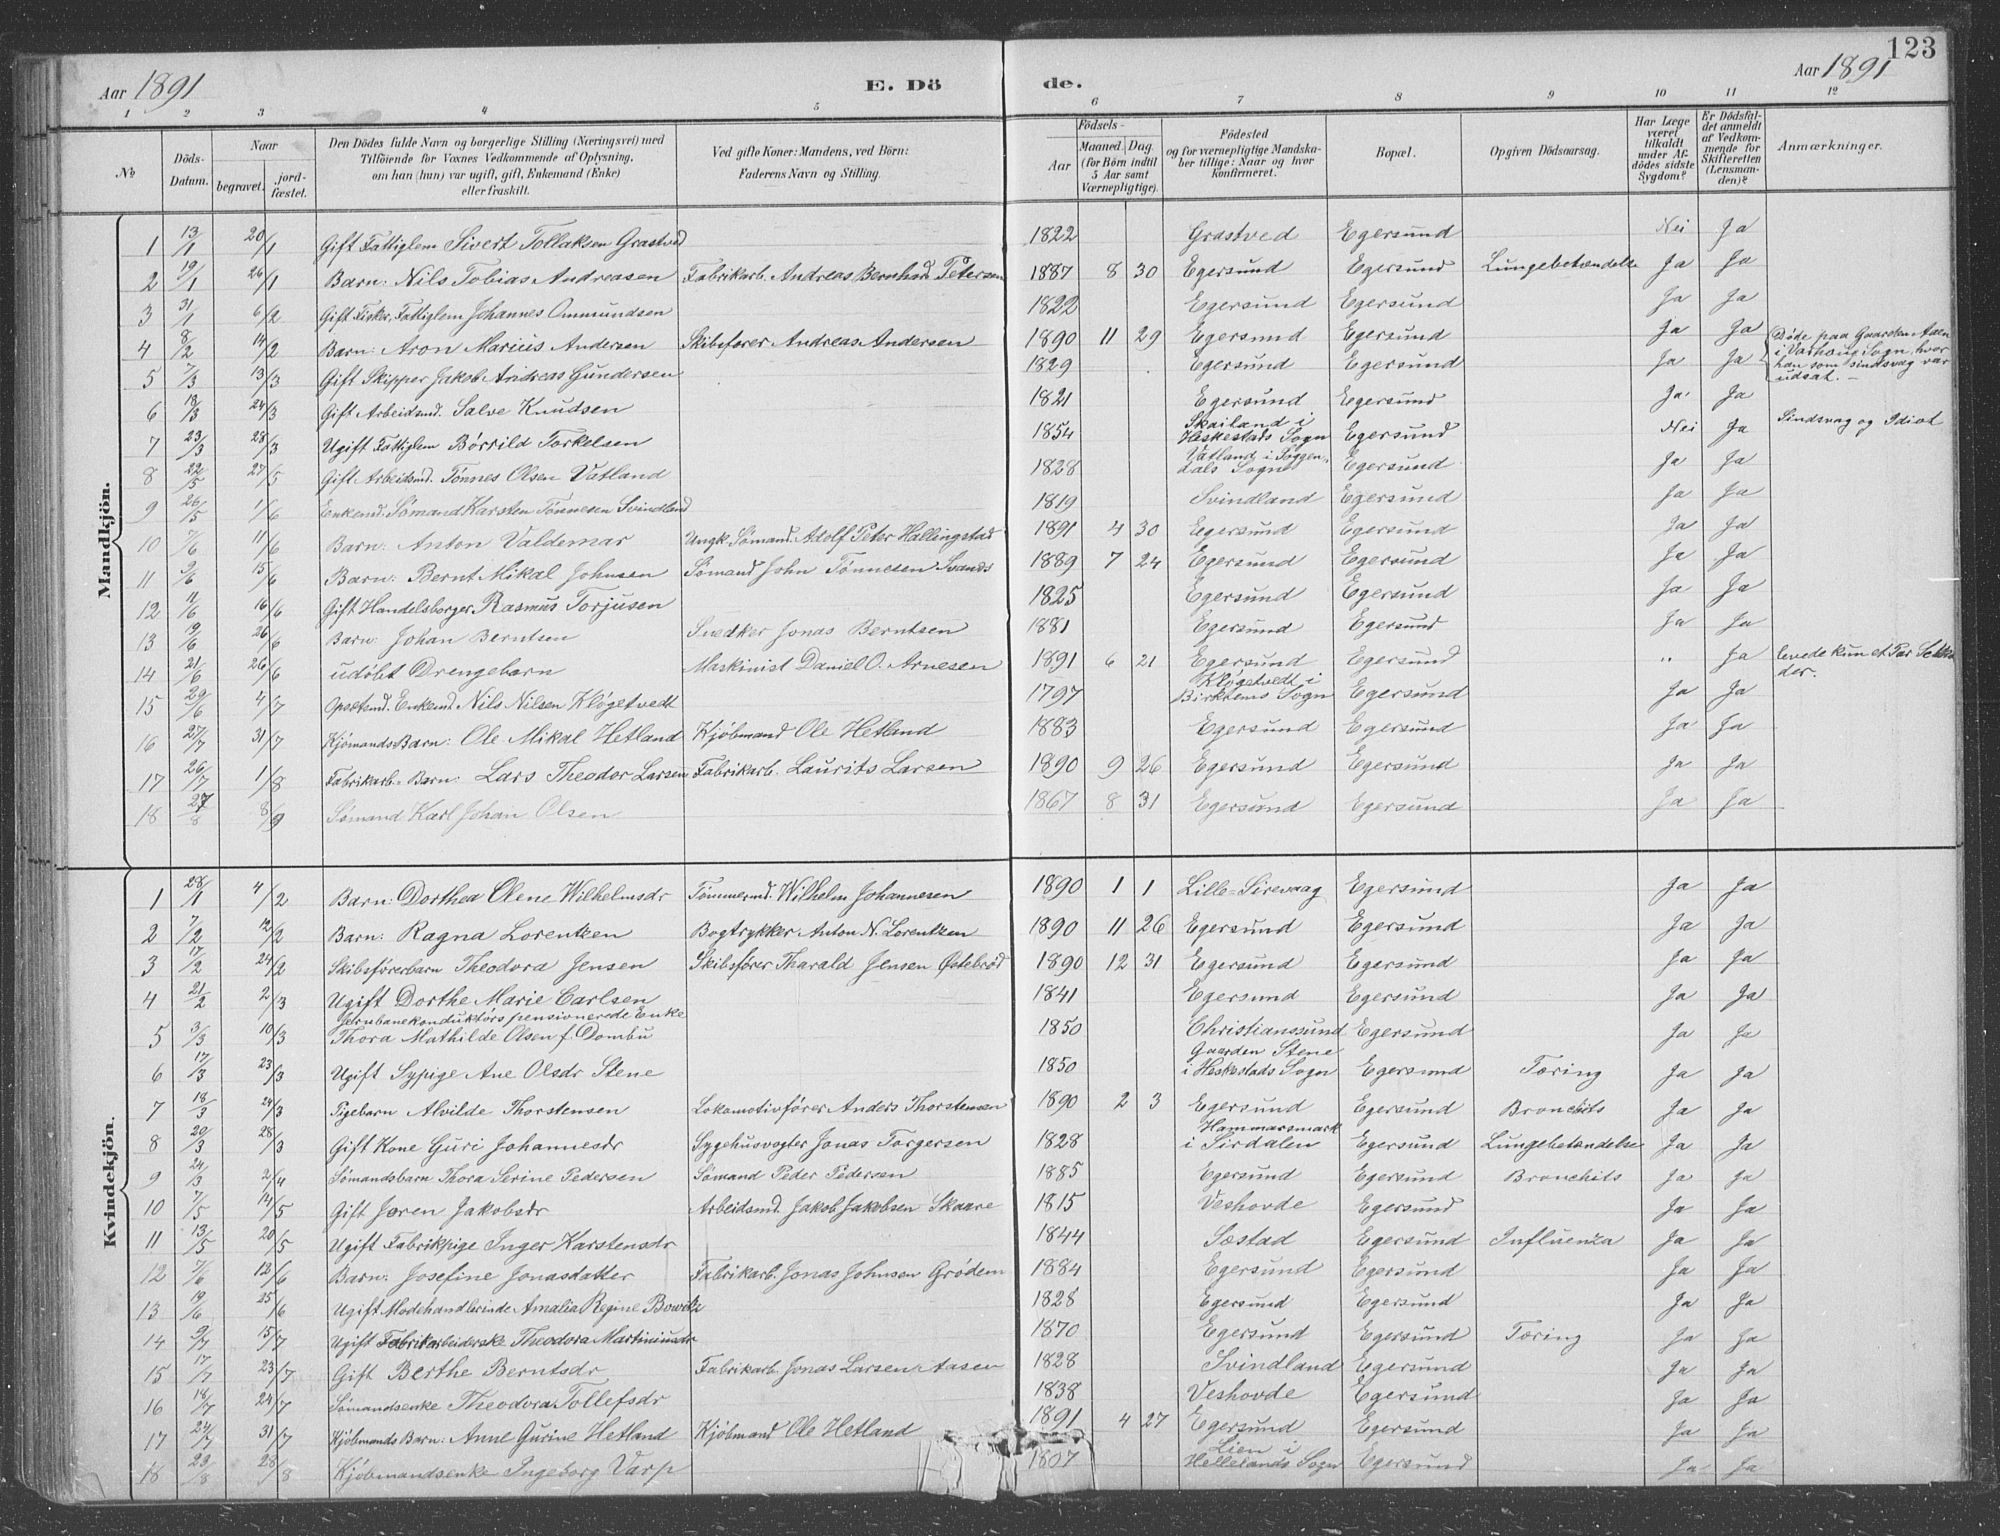 123
Aar 1891 E. Dö de. Aar 1891
1 2 3 4 5 6 7 8 9 10 11 12
№ Döds-Datum. Naar begravet. jordfæstet. Den Dödes fulde Navn og borgerlige Stilling (Næringsvei) med Tilföiende for Voxnes Vedkommende af Oplysning, om han (hun) var ugift, gift, Enkemand (Enke) eller fraskilt. Ved gifte Koner: Mandens, ved Börn: Faderens Navn og Stilling. Födsels- Aar Maaned. Dag. (for Börn indtil 5 Aar samt Værnepligtige). Födested og for værnepligtige Mandskaber tillige: Naar og hvor konfirmeret. Bopæl. Opgiven Dödsaarsag. Har Læge været tilkaldt under Afdödes sidste Sygdom? Er Dödsfaldet anmeldt af Vedkommende for Skifteretten (Lensmanden)? Anmærkninger.
Mandkjön.
1 13/1 20/1 Gift Fattiglem Sivert Tollaksen Grastved 1822 Grastved Egersund Nei Ja
2 19/1 26/1 Barn: Nils Tobias Andreasen Fabrikarb. Andreas Bernhad Petersen 1887 8 30 Egersund Egersund Lungebetændelse Ja Ja
3 31/1 6/2 Gift Fisker, Fattiglem Johannes Ommundsen 1822 Egersund Egersund Ja Ja
4 8/2 14/2 Barn: Aron Marius Andersen Skibsfører Andreas Andersen 1890 11 29 Egersund Egersund Ja Ja
5 7/3 13/3 Gift Skipper Jakob Andreas Gundersen 1829 Egersund Egersund Ja Ja Døde paa Gaarden Aaen i Varhaug Sogn, hvor han som sindsvag var udsat.
6 18/3 24/3 Gift Arbeidsmd. Salve Knudsen 1821 Egersund Egersund Ja Ja
7 23/3 28/3 Ugift Fattiglem Børrild Torkelsen 1854 Skailand i Heskestads Sogn Egersund Nei Ja Sindsvag og Idiot
8 22/5 27/5 Gift Arbeidsmd. Tønnes Olsen Vatland 1828 Vatland i Soggendals Sogn Egersund Ja Ja
9 26/5 1/6 Enkemd. Sømand Karsten Tønnesen Svindland 1819 Svindland Egersund Ja Ja
10 7/6 11/6 Barn: Anton Valdemar Ungk. Sømand Adolf Peter Hallingstad 1891 4 30 Egersund Egersund Ja Ja
11 9/6 15/6 Barn: Bernt Mikal Johnsen Sømand John Tønnesen Svands 1889 7 24 Egersund Egersund Ja Ja
12 11/6 16/6 Gift Handelsborger Rasmus Torjusen 1825 Egersund Egersund Ja Ja
13 19/6 26/6 Barn: Johan Berntsen Snedker Jonas Berntsen 1881 Egersund Egersund Ja Ja
14 21/6 26/6 udøbt Drengebarn Maskinist Daniel O. Arnesen 1891 6 21 Egersund Egersund " Ja levede kun et Par
15 29/6 4/7 Opsetsmd. Enkemd. Nils Nilsen Kløgetvedt 1797 Kløgetvedt i Birkrems Sogn Egersund Ja Ja
16 27/7 31/7 KjømandsBarn: Ole Mikal Hetland Kjøbmand Ole Hetland 1883 Egersund Egersund Ja Ja
17 26/7 1/8 Fabrikarb.-Barn: Lars Theodor Larsen Fabrikarb. Laurits Larsen 1890 9 26 Egersund Egersund Ja Ja
18 27/8 8/9 Sømand Karl Johan Olsen 1867 8 31 Egersund Egersund Ja Ja
Kvindekjön.
1 28/1 4/2 Barn: Dorthea Olene Wilhelmsdr Tømmermd. Wilhelm Johannesen 1890 1 1 Lille-Sirevaag Egersund Ja Ja
2 7/2 12/2 Barn: Ragna Lorentzen Bogtrykker Anton N. Lorentzen 1890 11 26 Egersund Egersund Ja Ja
3 17/2 24/2 Skibsførerbarn Theodora Jensen Skibsfører Tharald Jensen Østebrød 1890 12 31 Egersund Egersund Ja Ja
4 21/2 2/3 Ugift Dorthe Marie Carlsen 1841 Egersund Egersund Ja Ja
5 3/3 10/3 Jernbanekonduktørs pensionerede Enke Thora Mathilde Olsen f. Dombu 1850 Christianssund Egersund Ja Ja
6 17/3 23/3 Ugift Sypige Ane Olsdr Stene 1850 Gaarden Stene i Heskestads Sogn Egersund Tæring Ja Ja
7 18/3 24/3 Pigebarn Alvilde Thorstensen Lokomotivfører Anders Thorstensen 1890 2 3 Egersund Egersund Bronchits Ja Ja
8 20/3 28/3 Gift Kone Guri Johannesdr Sygehusvogter Jonas Torgersen 1828 Hammarsmark i Sirdalen Egersund Lungebetændelse Ja Ja
9 24/3 2/4 Sømandsbarn Thora Serine Pedersen Sømand Peder Pedersen 1885 Egersund Egersund Bronchits Ja Ja
10 7/5 14/5 Gift Jøren Jakobsdr Arbeidsmd. Jakob Jakobsen Skaare 1815 Veshovde Egersund Ja Ja
11 13/5 20/5 Ugift Fabrikpige Inger Karstensdr 1844 Sæstad Egersund Influenza Ja Ja
12 7/6 12/6 Barn: Josefine Jonasdatter Fabrikarb. Jonas Johnsen Grødem 1884 Egersund Egersund Ja Ja
13 19/6 25/6 Ugift Modehandlerinde Amalia Regine Bowitz 1828 Egersund Egersund Ja Ja
14 9/7 15/7 Ugift Fabrikarbeiderske Theodora Martiniusdr 1870 Egersund Egersund Tæring Ja Ja
15 17/7 23/7 Gift Berthe Berntsdr Fabrikarb. Jonas Larsen Aasen 1828 Svindland Egersund Ja Ja
16 18/7 24/7 Sømandsenke Theodora Tollefsdr 1838 Veshovde Egersund Ja Ja
17 24/7 31/7 Kjøbmands Barn: Anne Gurine Hetland Kjøbmand Ole Hetland 1891 4 27 Egersund Egersund Ja Ja
18 23/8 28/8 Kjøbmandsenke Ingeborg Varp 1807 Lien i Hellelands Sogn Egersund Ja Ja